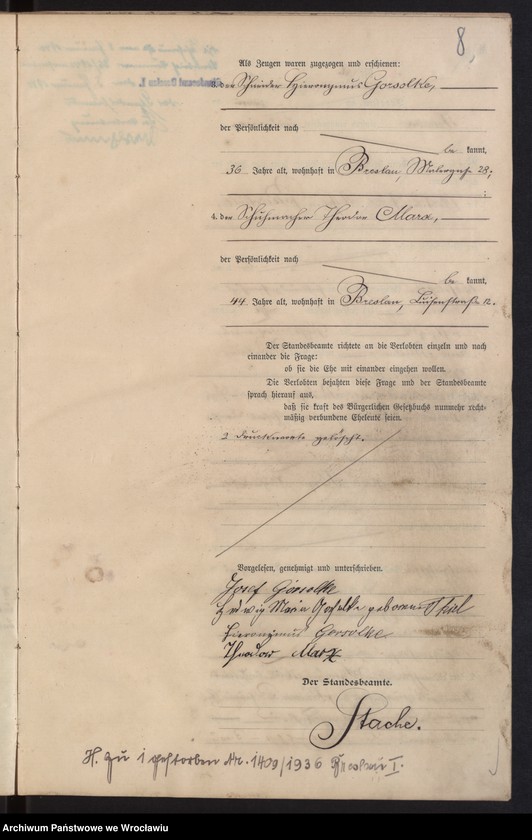 8,
Als Zeugen waren zugezogen und erschienen:
3. der Schneider Hieronymus Gorsolke,
der Persönlichkeit nach
be kannt,
36 Jahre alt, wohnhaft in Breslau, Malergasse 28;
;
4. der Schuhmacher Theodor Marx,
der Persönlichkeit nach
be kannt,
44 Jahre alt, wohnhaft in Breslau, Luisenstraße 12.
Der Standesbeamte richtete an die Verlobten einzeln und nach
einander die Frage:
ob sie die Ehe mit einander eingehen wollen.
Die Verlobten bejahten diese Frage und der Standesbeamte
sprach hierauf aus,
daß sie kraft des Bürgerlichen Gesetzbuchs nunmehr recht-
mäßig verbundene Eheleute seien.
2 Druckworte gelöscht.
Vorgelesen, genehmigt und unterschrieben.
Josef Gorsolke
Hedwig Maria Gorsolke geborene
Hieronymus Gorsolke
Theodor Marx
Der Standesbeamte.
Stache.
H. zu 1 gestorben Nr. 1409/1936 Breslau I.
Archiwum Państwowe we Wrocławiu